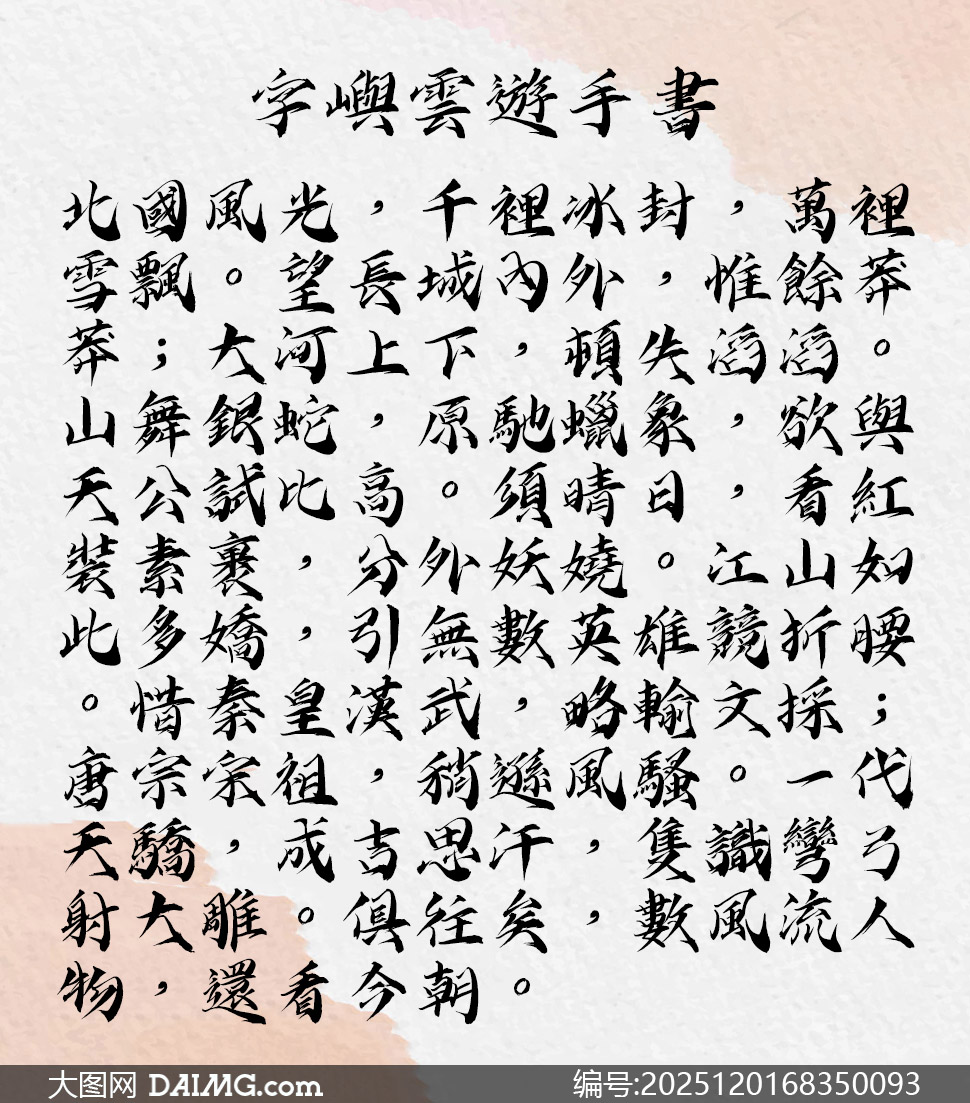 字嶼雲遊手書
北國風光，千裡冰封，萬裡
雪飄。望長城內外，惟餘莽
莽；大河上下，頓失滔滔。
山舞銀蛇，原馳蠟象，欲與
天公試比高。須晴日，看紅
裝素裹，分外妖嬈。江山如
此多嬌，引無數英雄競折腰
。惜秦皇漢武，略輸文採；
唐宗宋祖，稍遜風騷。一代
天驕，成吉思汗，隻識彎弓
射大雕。俱往矣，數風流人
物，還看今朝。
大图网 DAIMG.com
编号:2025120168350093